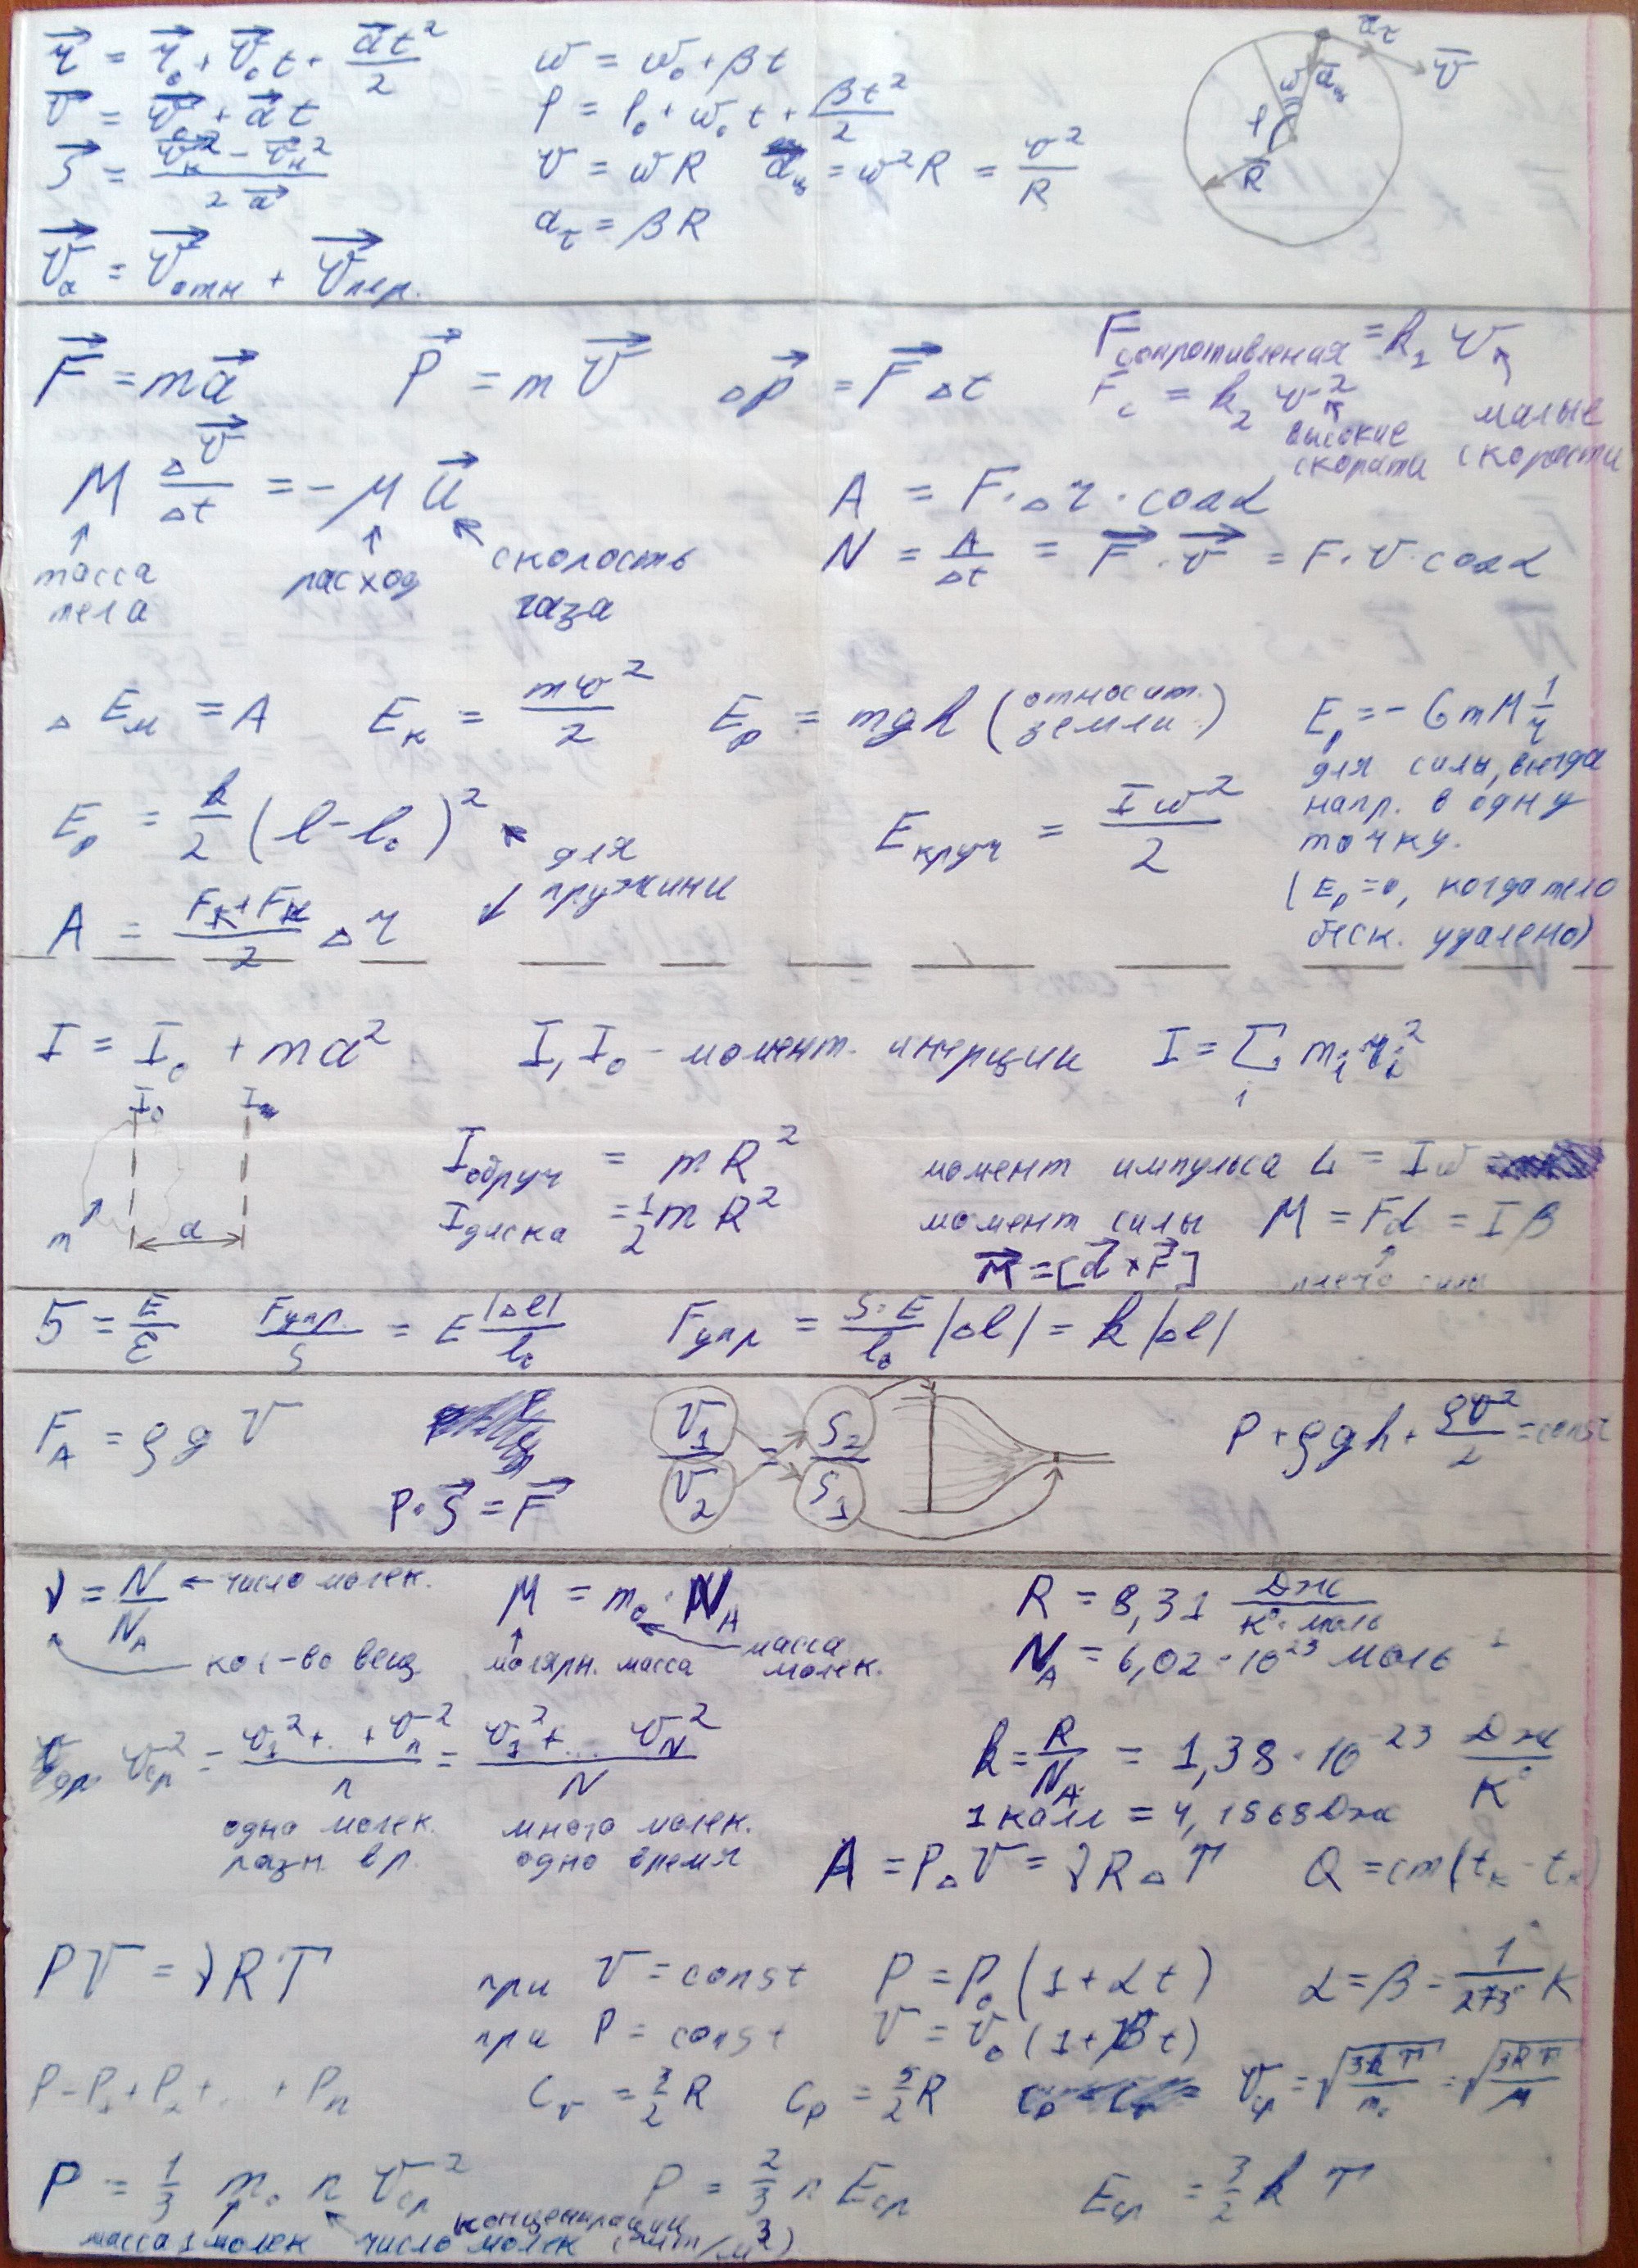 r⃗ = r⃗₀ + v⃗₀t + a⃗t²/2
v⃗ = v⃗₀ + a⃗t
S⃗ = (v⃗к² - v⃗н²)/2a⃗
v⃗а = v⃗отн + v⃗пер.
ω = ω₀ + βt
φ = φ₀ + ω₀t + βt²/2
v = ωR aц = ω²R = v²/R
aτ = βR
a⃗τ
v⃗
ω a⃗ц
φ
R⃗
F⃗ = ma⃗ P⃗ = mv⃗ Δp⃗ = F⃗Δt
Fсопротивления = k₁v
Fс = k₂v²
малые скорости
высокие скорати
M Δv⃗/Δt = -μu⃗
масса тела
расход
скорость газа
A = F·Δr·cosα
N = A/Δt = F⃗·v⃗ = F·v·cosα
ΔEм = A Eк = mv²/2 Eр = mgh (относит. земли)
Eр = -GmM 1/r
для силы, всегда
напр. в одну
точку.
(Eр=0, когда тело
беск. удалено)
Eр = k/2 (l-l₀)²
для пружини
Eкруч = Iω²/2
A = (Fк+Fн)/2 Δr
I = I₀ + ma² I, I₀ - момент. инерции I = Σ mᵢrᵢ²
I₀ I
m a
Iобруч = mR²
Iдиска = ½mR²
момент импульса L = Iω
момент силы M = Fd = Iβ
M⃗ = [d⃗×F⃗] плечо силы
Б = E/ε Fупр./S = E |Δl|/l₀ Fупр = S·E/l₀ |Δl| = k|Δl|
FА = ρgV
P·S⃗ = F⃗
v₁/v₂ = S₂/S₁
P + ρgh + ρv²/2 = const
ν = N/NА ← число молек.
кол-во вещ.
M = m₀·NА
молярн. масса
масса молек.
R = 8,31 Дж/K°·моль
NА = 6,02·10²³ моль⁻¹
vср² = (v₁²+..+vₙ²)/n = (v₁²+... v_N²)/N
одно молек.
разн. вр.
много молек.
одно время
k = R/NА = 1,38·10⁻²³ Дж/K°
1 калл = 4,1868 Дж
A = PΔV = νRΔT Q = cm(tк - tн)
PV = νRT
при V = const P = P₀(1+αt)
при P = const V = V₀(1+βt)
α = β = 1/273° K
P = P₁+P₂+... + Pₙ
Cᵥ = 3/2 R Cₚ = 5/2 R
vср = √(3kT/m₀) = √(3RT/M)
P = 1/3 m₀ n vср²
масса 1 молек
концентрации
число молек (шт/м³)
P = 2/3 n Eср
Eср = 3/2 kT